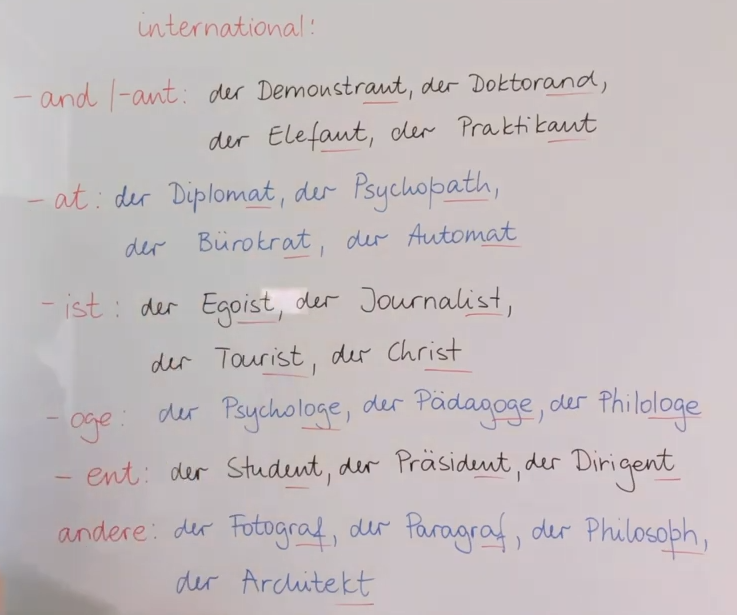 international:
-and/-ant: der Demonstrant, der Doktorand,
der Elefant, der Praktikant
-at: der Diplomat, der Psychopath,
der Bürokrat, der Automat
-ist: der Egoist, der Journalist,
der Tourist, der Christ
-oge: der Psychologe, der Pädagoge, der Philologe
-ent: der Student, der Präsident, der Dirigent
andere: der Fotograf, der Paragraf, der Philosoph,
der Architekt